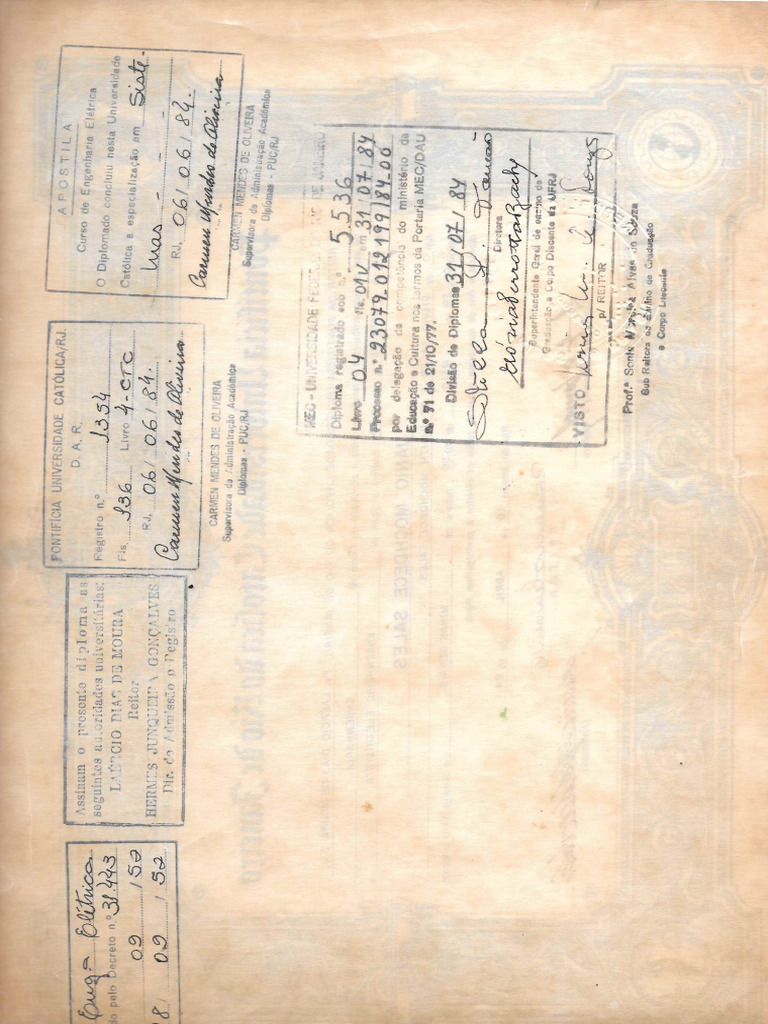 Engª Elétrica
do pelo Decreto n.º 31.443
09 / 52
8 / 09 / 52
Assinam o presente diploma as
seguintes autoridades universitárias:
LAÉRCIO DIAS DE MOURA
Reitor
HERMES JUNQUEIRA GONÇALVES
Dir. de Admissão e Registro
PONTIFÍCIA UNIVERSIDADE CATÓLICA/RJ.
D. A. R.
Registro n.º 1354
Fls. 136 Livro 4-CTC
RJ, 06/06/84.
Carmen Mendes de Oliveira
CARMEN MENDES DE OLIVEIRA
Supervisora da Administração Acadêmica
Diplomas - PUC/RJ
APOSTILA
Curso de Engenharia Elétrica
O Diplomado concluiu nesta Universidade
Católica a especialização em Siste-
mas - - -
RJ, 06/06/84.
Carmen Mendes de Oliveira
CARMEN MENDES DE OLIVEIRA
Supervisora da Administração Acadêmica
Diplomas - PUC/RJ
MEC - UNIVERSIDADE FEDERAL DO RIO DE JANEIRO
Diploma registrado sob n.º 5.536
Livro 04 fls. 01v em 31/07/84
Processo n.º 23079.012199/84-00
por delegação de competência do ministério da
Educação e Cultura nos termos da Portaria MEC/DAU
n.º 71 de 21/10/77.
Divisão de Diplomas 31/07/84
Diretora
Superintendente Geral de ensino de
Graduação e Corpo Discente da UFRJ
VISTO
p/ REITOR
Prof.ª Sonia Alves de Souza
Sub Reitora de Ensino de Graduação
e Corpo Discente